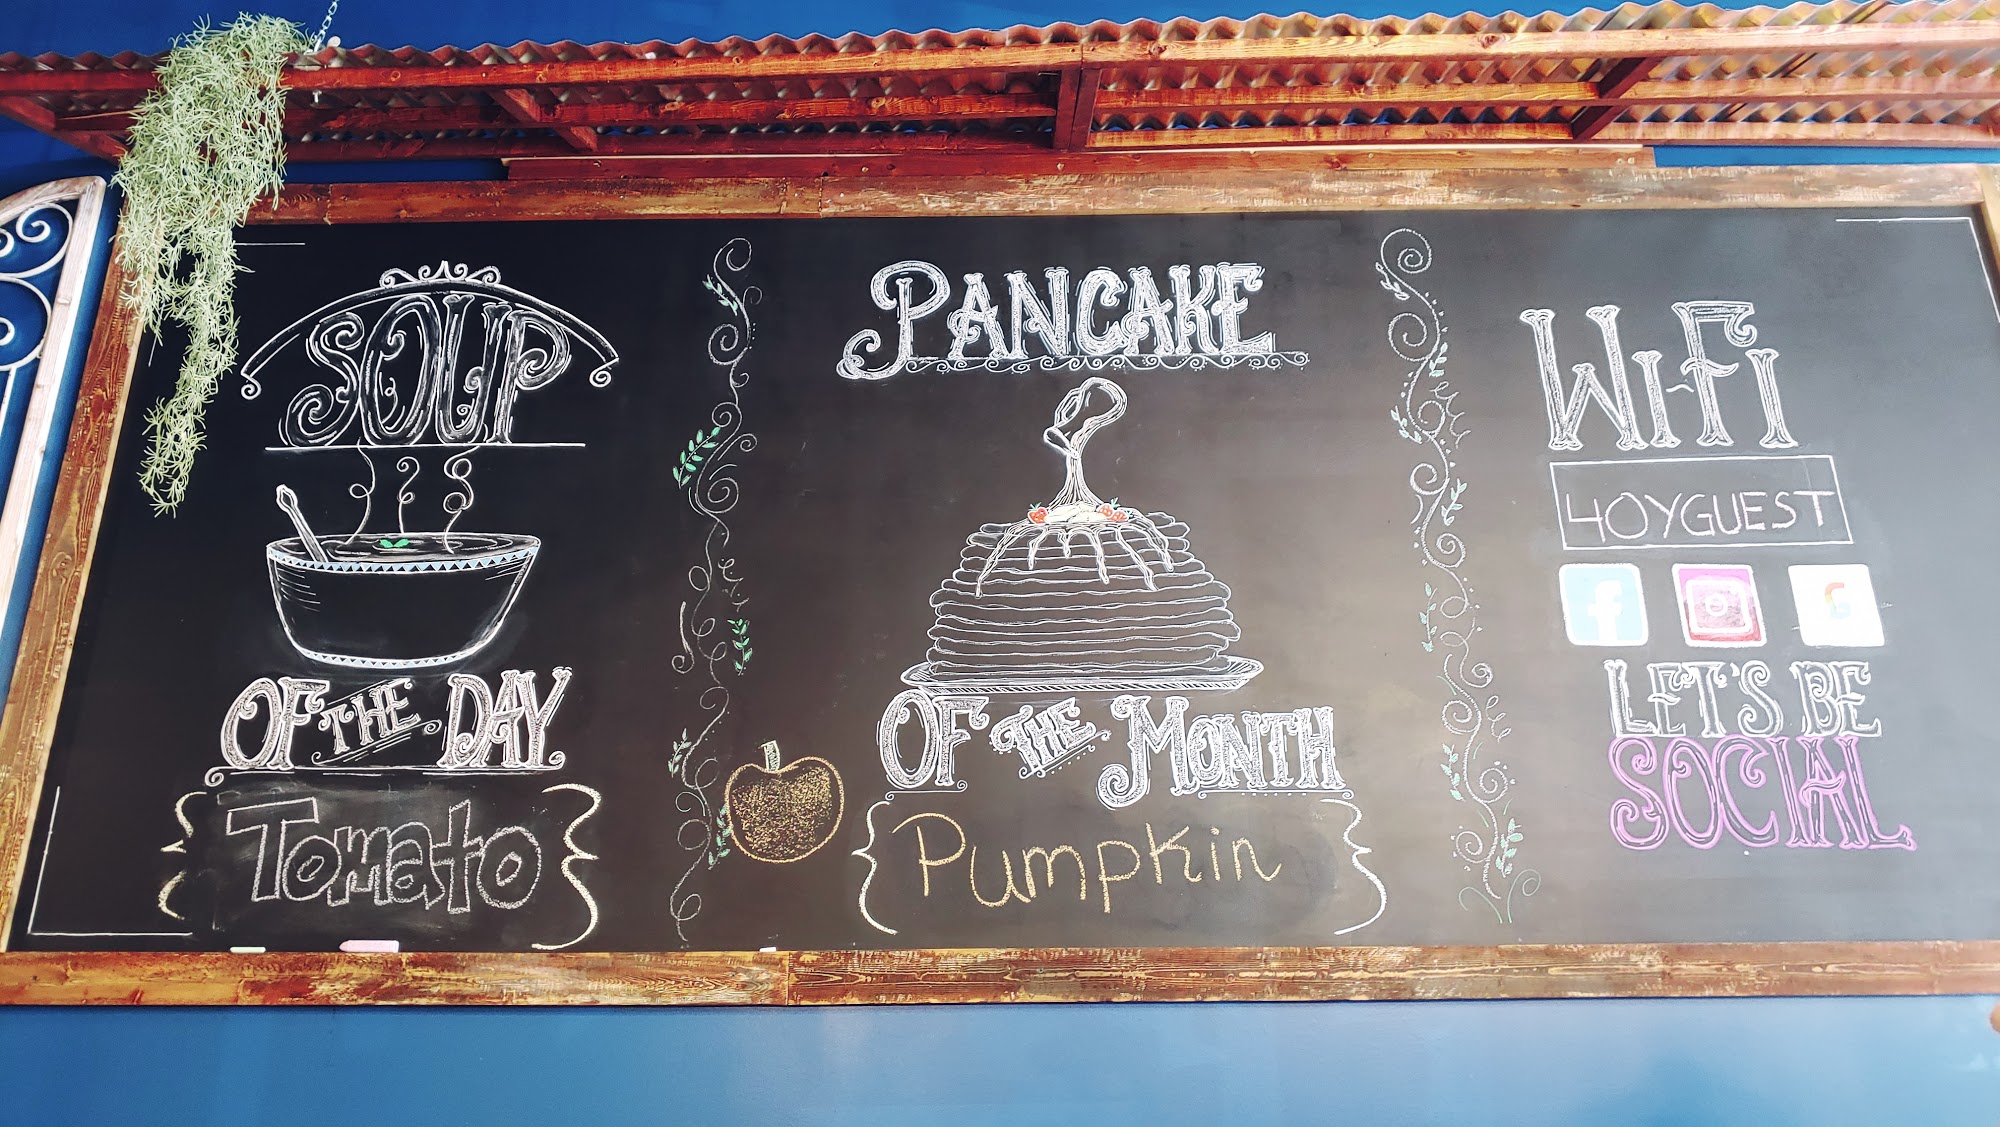 SOUP
OF THE DAY
Tomato
PANCAKE
OF THE MONTH
Pumpkin
WI-FI
4OYGUEST
f
G
LET'S BE
SOCIAL